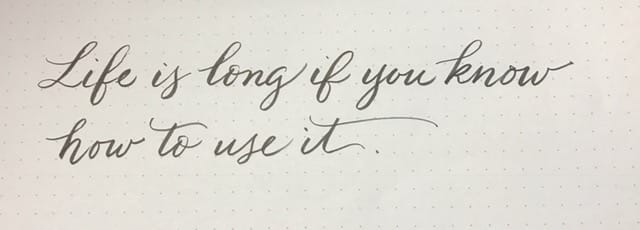 Life is long if you know
how to use it.